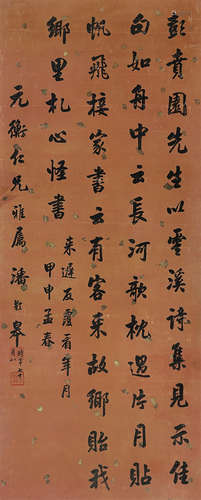 彭賁園先生以雲溪詩集見示佳
句如舟中云長河歌枕過片月貼
帆飛接家書云有客來故鄉貽我
鄉里札心怪書
來遲反覆看年月
甲申孟春
元衡仁兄雅屬 潘齡皋